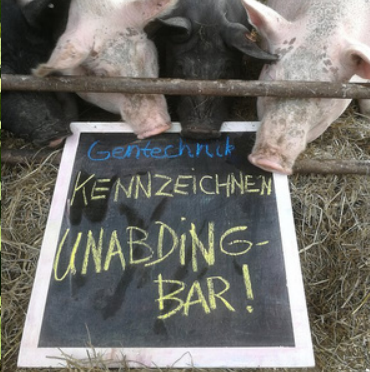 Gentechnik
KENNZEICHNEN
UNABDiNG-
BAR!